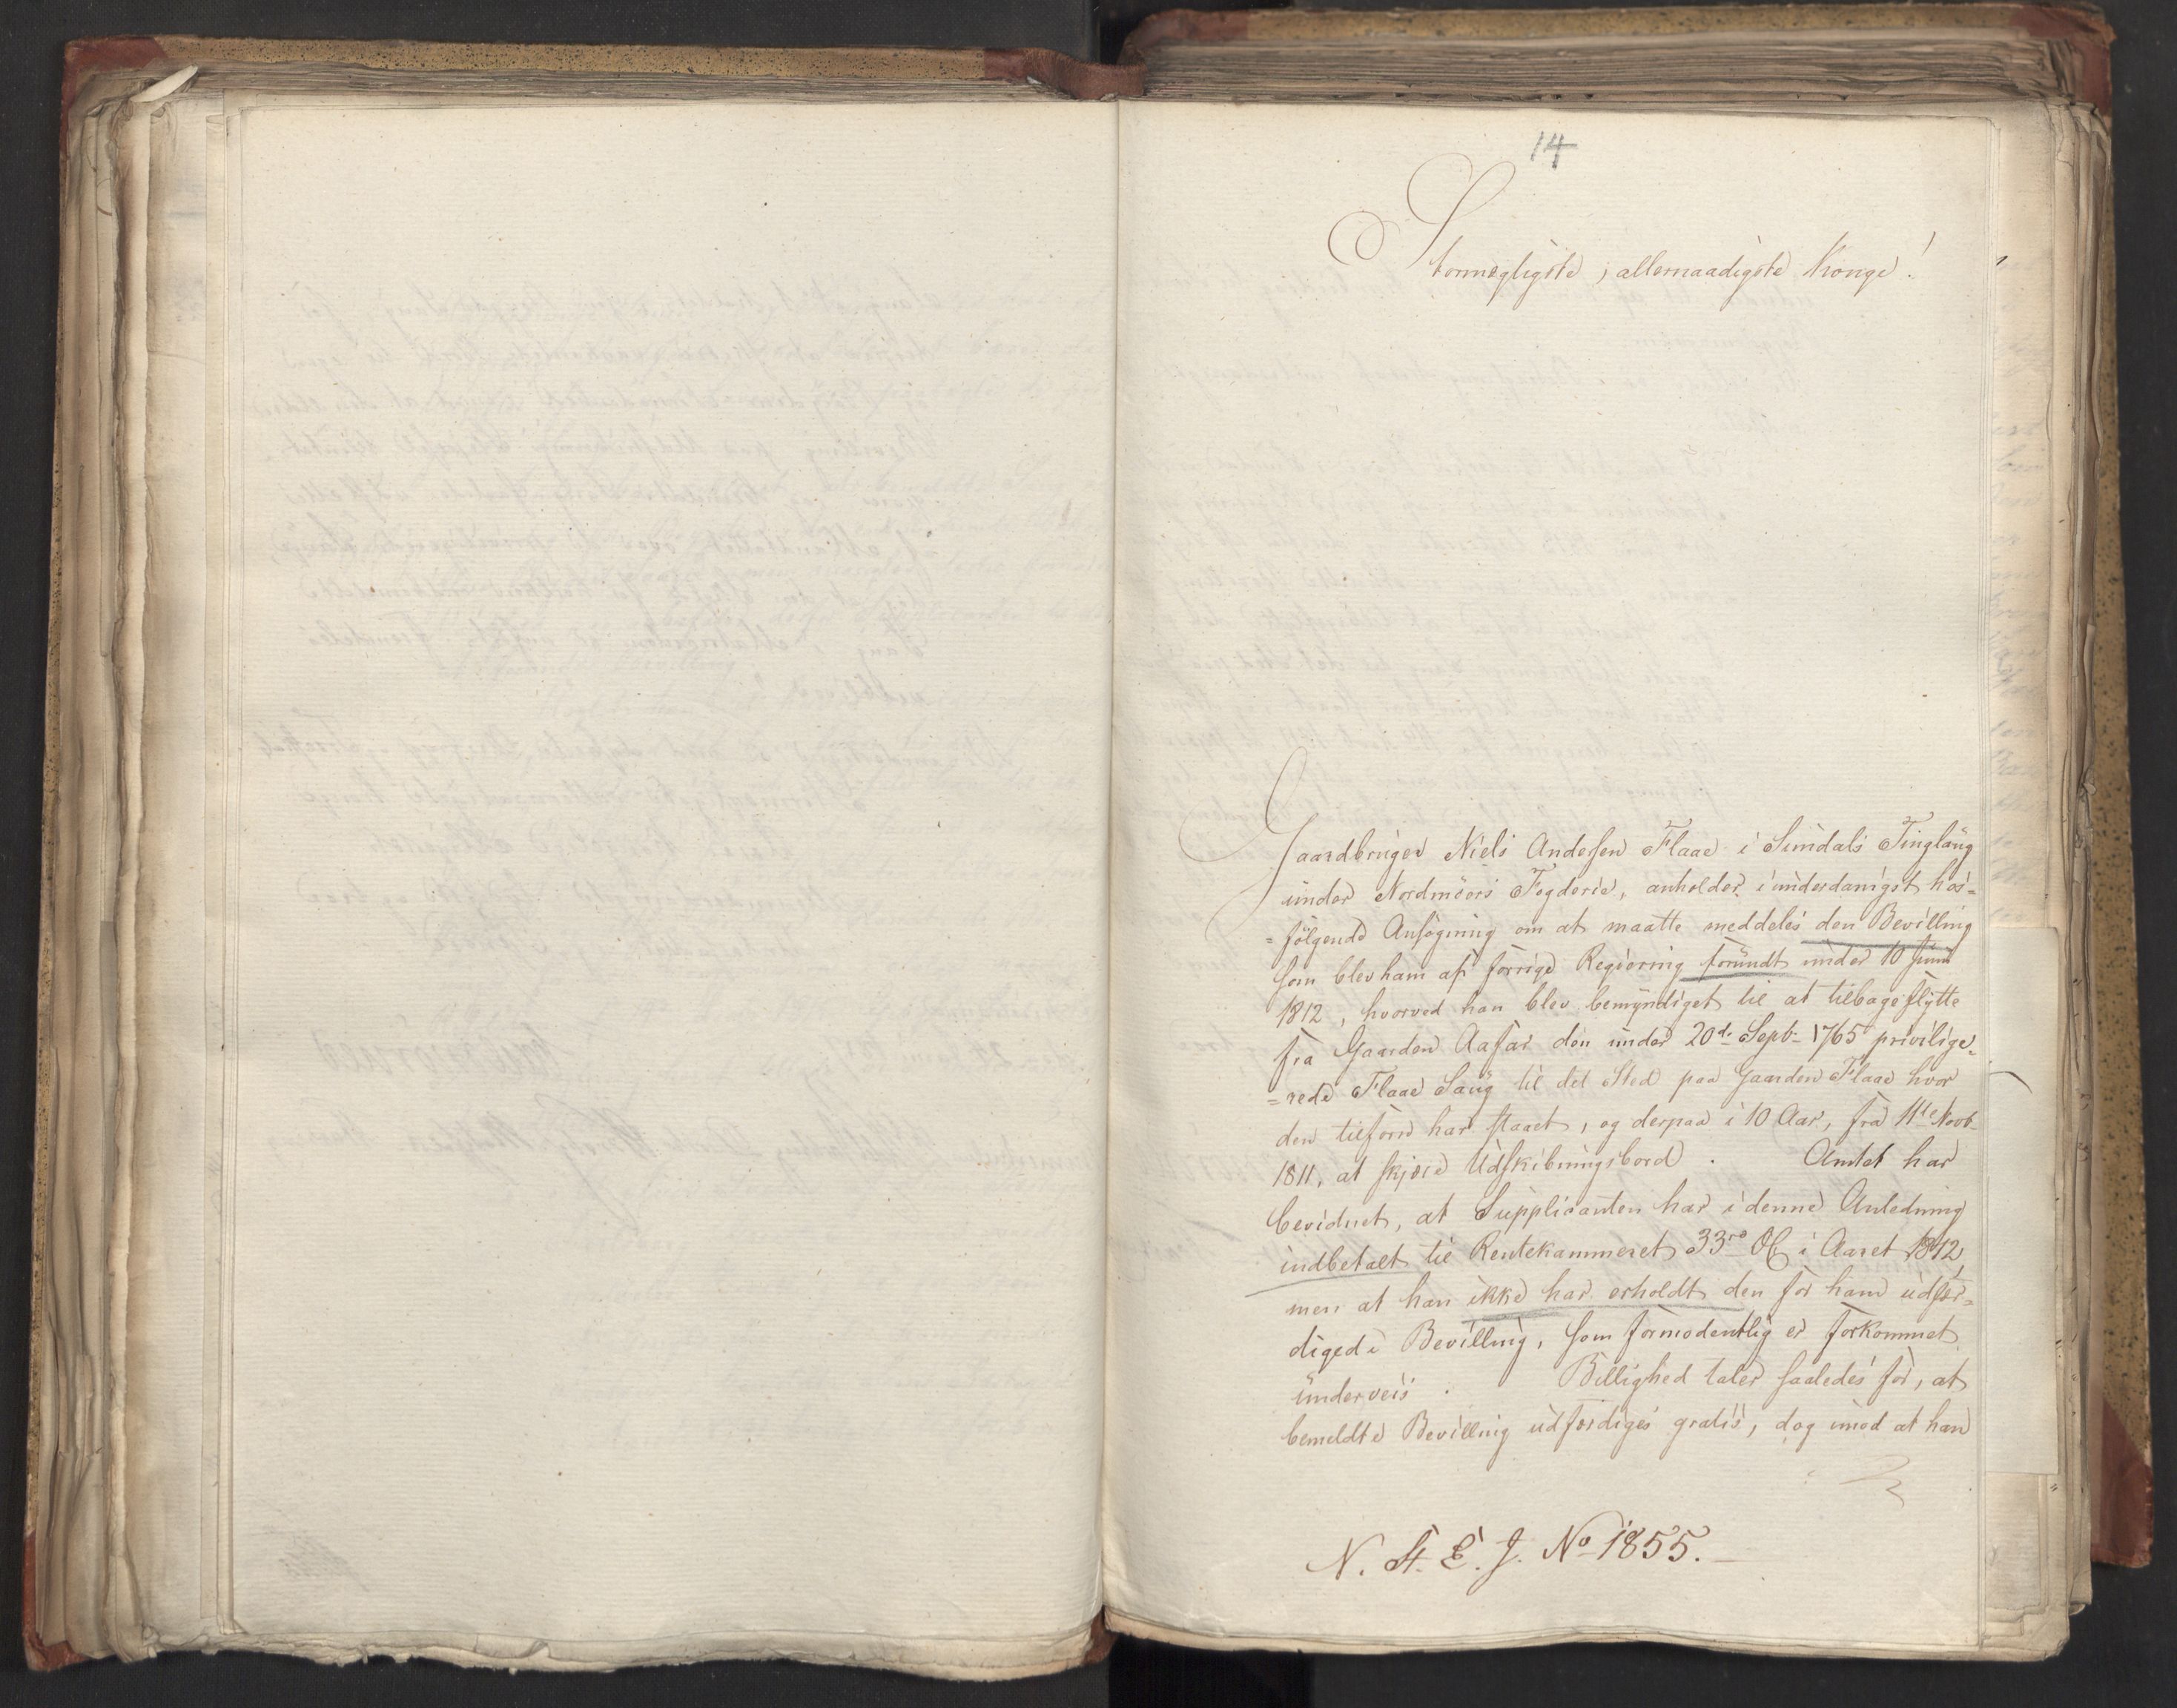 14
Stormægtigste, allernaadigste Konge!
Gaardbruger Niels Andersen Flaae i Sundals Tinglaug
under Nordmöers Fogderie, anholder i underdanigst hos-
=fölgende Ansögning om at maatte meddeles den Bevilling
som blev ham af forrige Regiering forundt under 10 Juni
1812, hvorved han blev bemyndiget til at tilbageflytte
fra Gaarden Aafar den under 20de Septb. 1765 privilige-
=rede Flaae Saug til det Sted paa Gaarden Flaae hvor
den tilforn har staaet, og derpaa i 10 Aar, fra 11te Novb.
1811, at skjære Udskibningsbord. Amtet har
bevidnet, at Supplicanten har i denne Anledning
indbetalt til Rentekammeret 33 i Aaret 1812,
men at han ikke har erholdt den for ham udfær-
digede Bevilling, som formodentlig er forkommet
underveis. Billighed taler saaledes for, at
bemeldte Bevilling udfærdiges gratis, dog imod at han
N. St. E. J. No 1855.